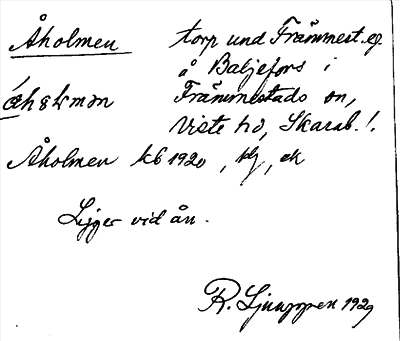 Åholmen torp und Främmest. eg.
å Baljefors i
Främmestads sn,
Viste hd, Skarab. l.
Åholmen kb 1920, hfl, ek
Ligger vid ån.
R. Ljunggren 1929